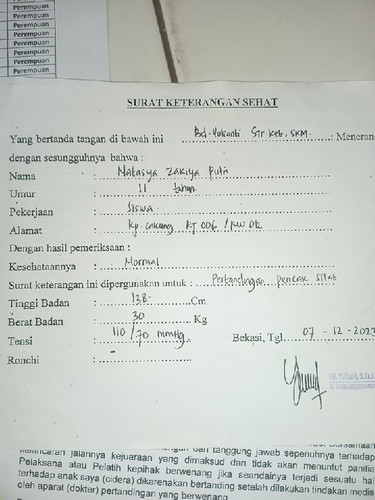 Perempuan
Perempuan
Perempuan
Perempuan
Perempuan
Perempuan
Perempuan
Perempuan
SURAT KETERANGAN SEHAT
Yang bertanda tangan di bawah ini Bd. Str Keb, SKM :Meneran
dengan sesungguhnya bahwa :
Nama : Natasya Zakiya Putri
Umur : 11 tahun
Pekerjaan : Siswa
Alamat : Kp. Cakung RT 006 / RW 02
Dengan hasil pemeriksaan :
Kesehataannya : Normal
Surat keterangan ini dipergunakan untuk : Pertandingan pencak silat
Tinggi Badan : 128 Cm
Berat Badan : 30 Kg
Tensi : 110/70 mmHg
Bekasi, Tgl. 07 - 12 - 202
Ronchi : -
dan tanggung jawab sepenuhnya terhadap
kelancaran jalannya kejuaraan yang dimaksud dan tidak akan menuntut panitia
Pelaksana atau Pelatih kepihak berwenang jika seandainya terjadi sesuatu hal
terhadap anak saya (cidera) dikarenakan bertanding setelah dilakukan tindakan medis
oleh aparat (dokter) pertandingan yang berwenang